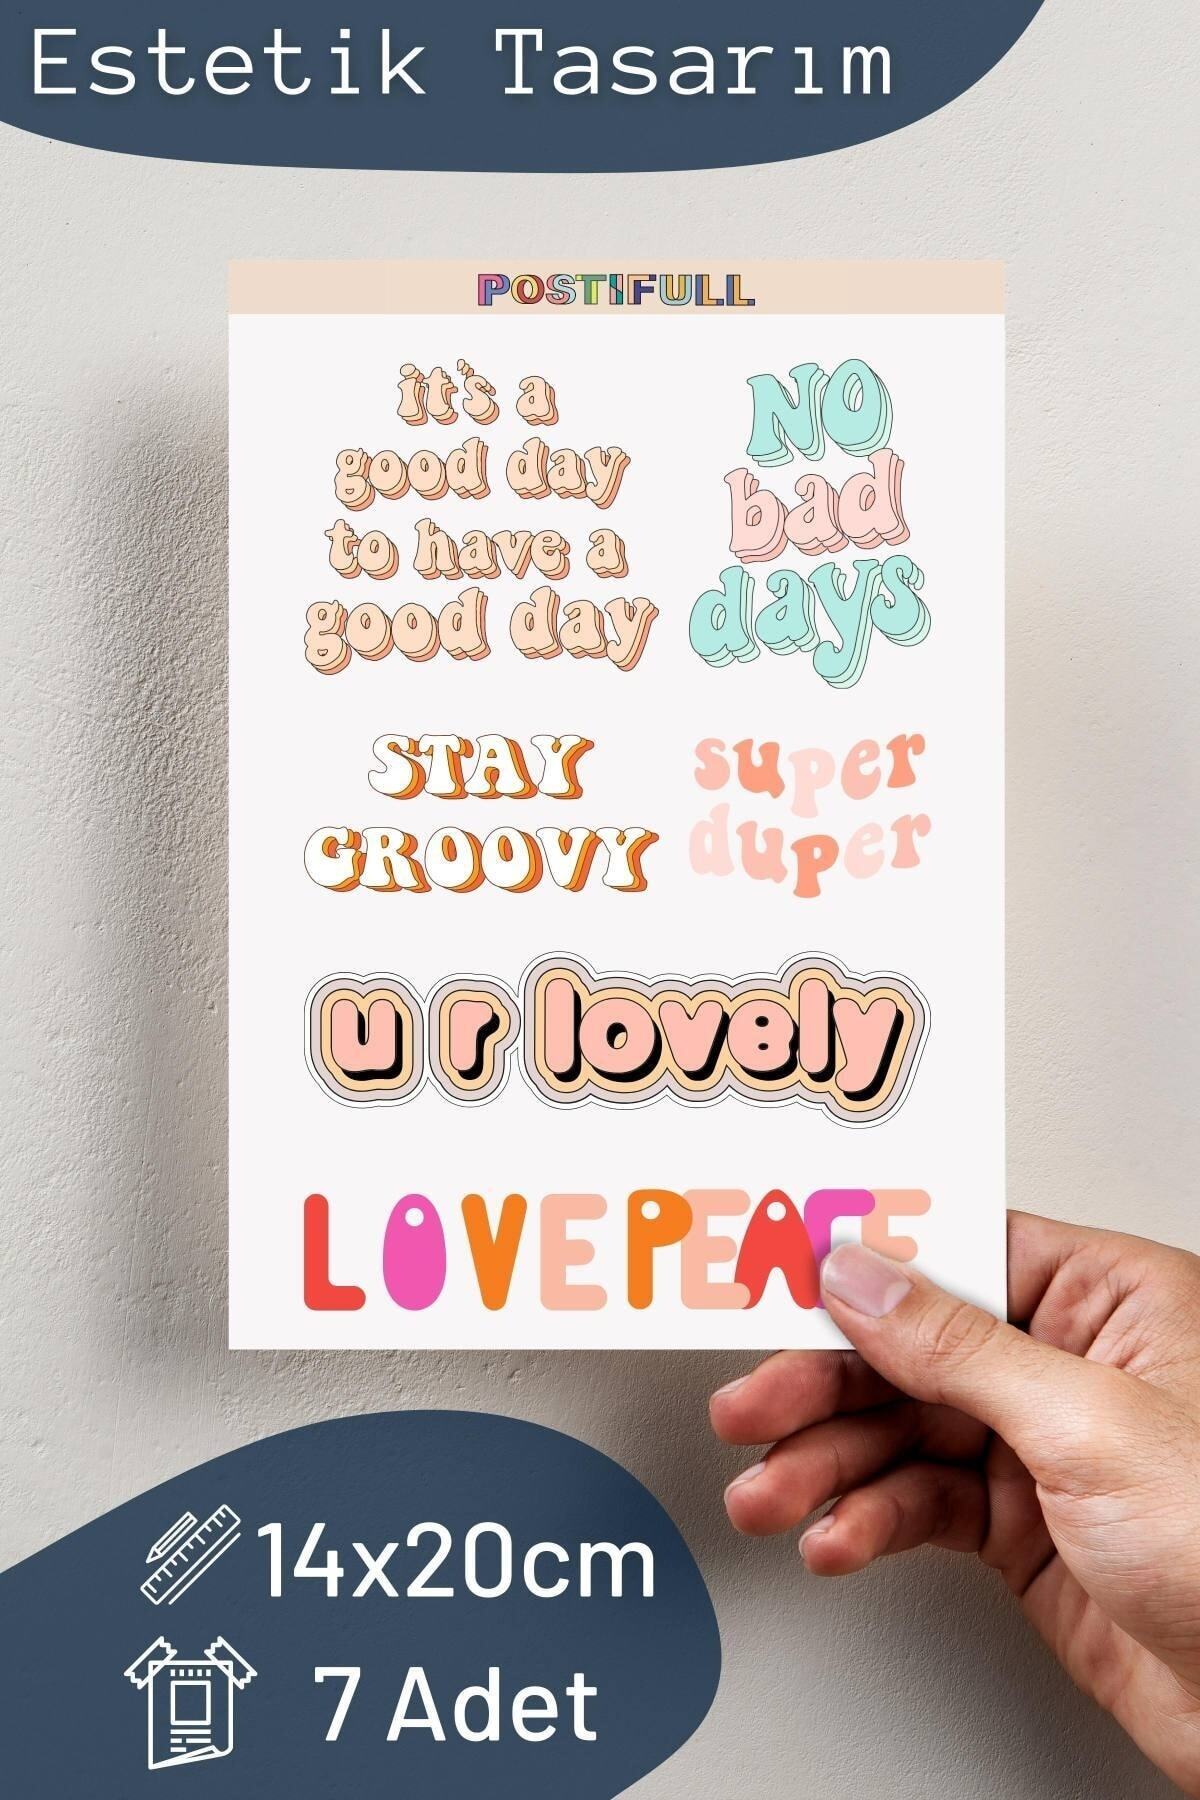 Estetik Tasarım
POSTIFULL
it's a
good day
to have a
good day
NO
bad
days
STAY
GROOVY
super
duper
u r lovely
LOVE PEACE
14x20cm
7 Adet